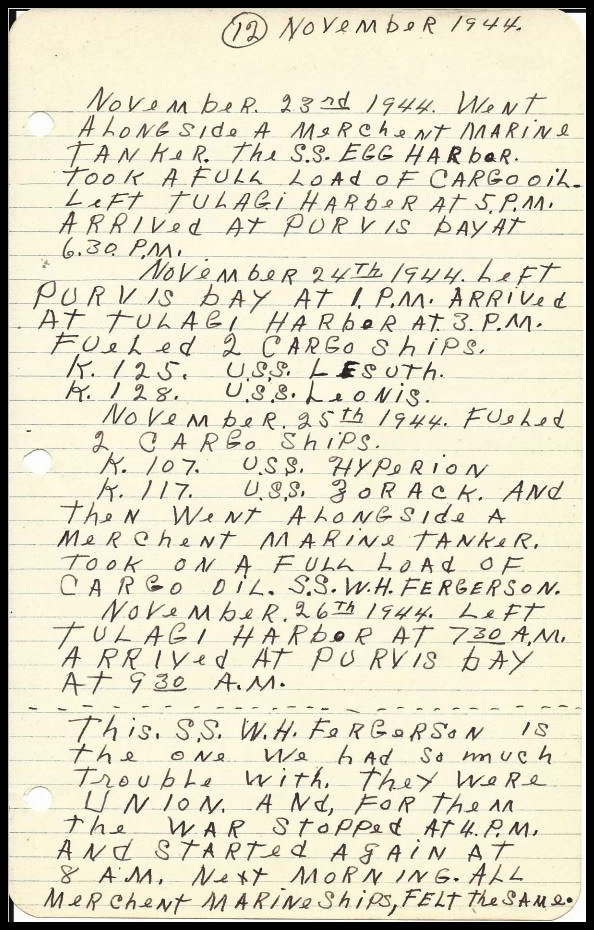 (12) November 1944.
November. 23rd 1944. Went
Alongside A Merchent Marine
Tanker. The S.S. Egg Harbor.
Took A Full Load of Cargo oil.
Left Tulagi Harber At 5. P.M.
Arrived At Purvis bay At
6.30 P.M.
November 24Th 1944. Left
Purvis bay At 1. P.M. Arrived
At Tulagi Harbor At. 3. P.M.
Fueled 2 Cargo ships.
K. 125. U.S.S. Lesuth.
K. 128. U.S.S. Leonis.
November. 25th 1944. Fueled
2 Cargo Ships.
K. 107. U.S.S. Hyperion
K. 117. U.S.S. Zorack. And
Then Went Alongside A
Merchent Marine Tanker.
Took on A Full Load of
Cargo Oil. S.S. W.H. Fergerson.
November. 26Th 1944. Left
Tulagi Harbor At 730 A.M.
Arrived At Purvis bay
At 930 A.M.
This. S.S. W.H. Fergerson is
the one we had so much
Trouble with. They were
Union. And, for them
the War stopped At 4. P.M.
And started again at
8 A.M. Next Morning. All
Merchent Marine Ships, felt the same.